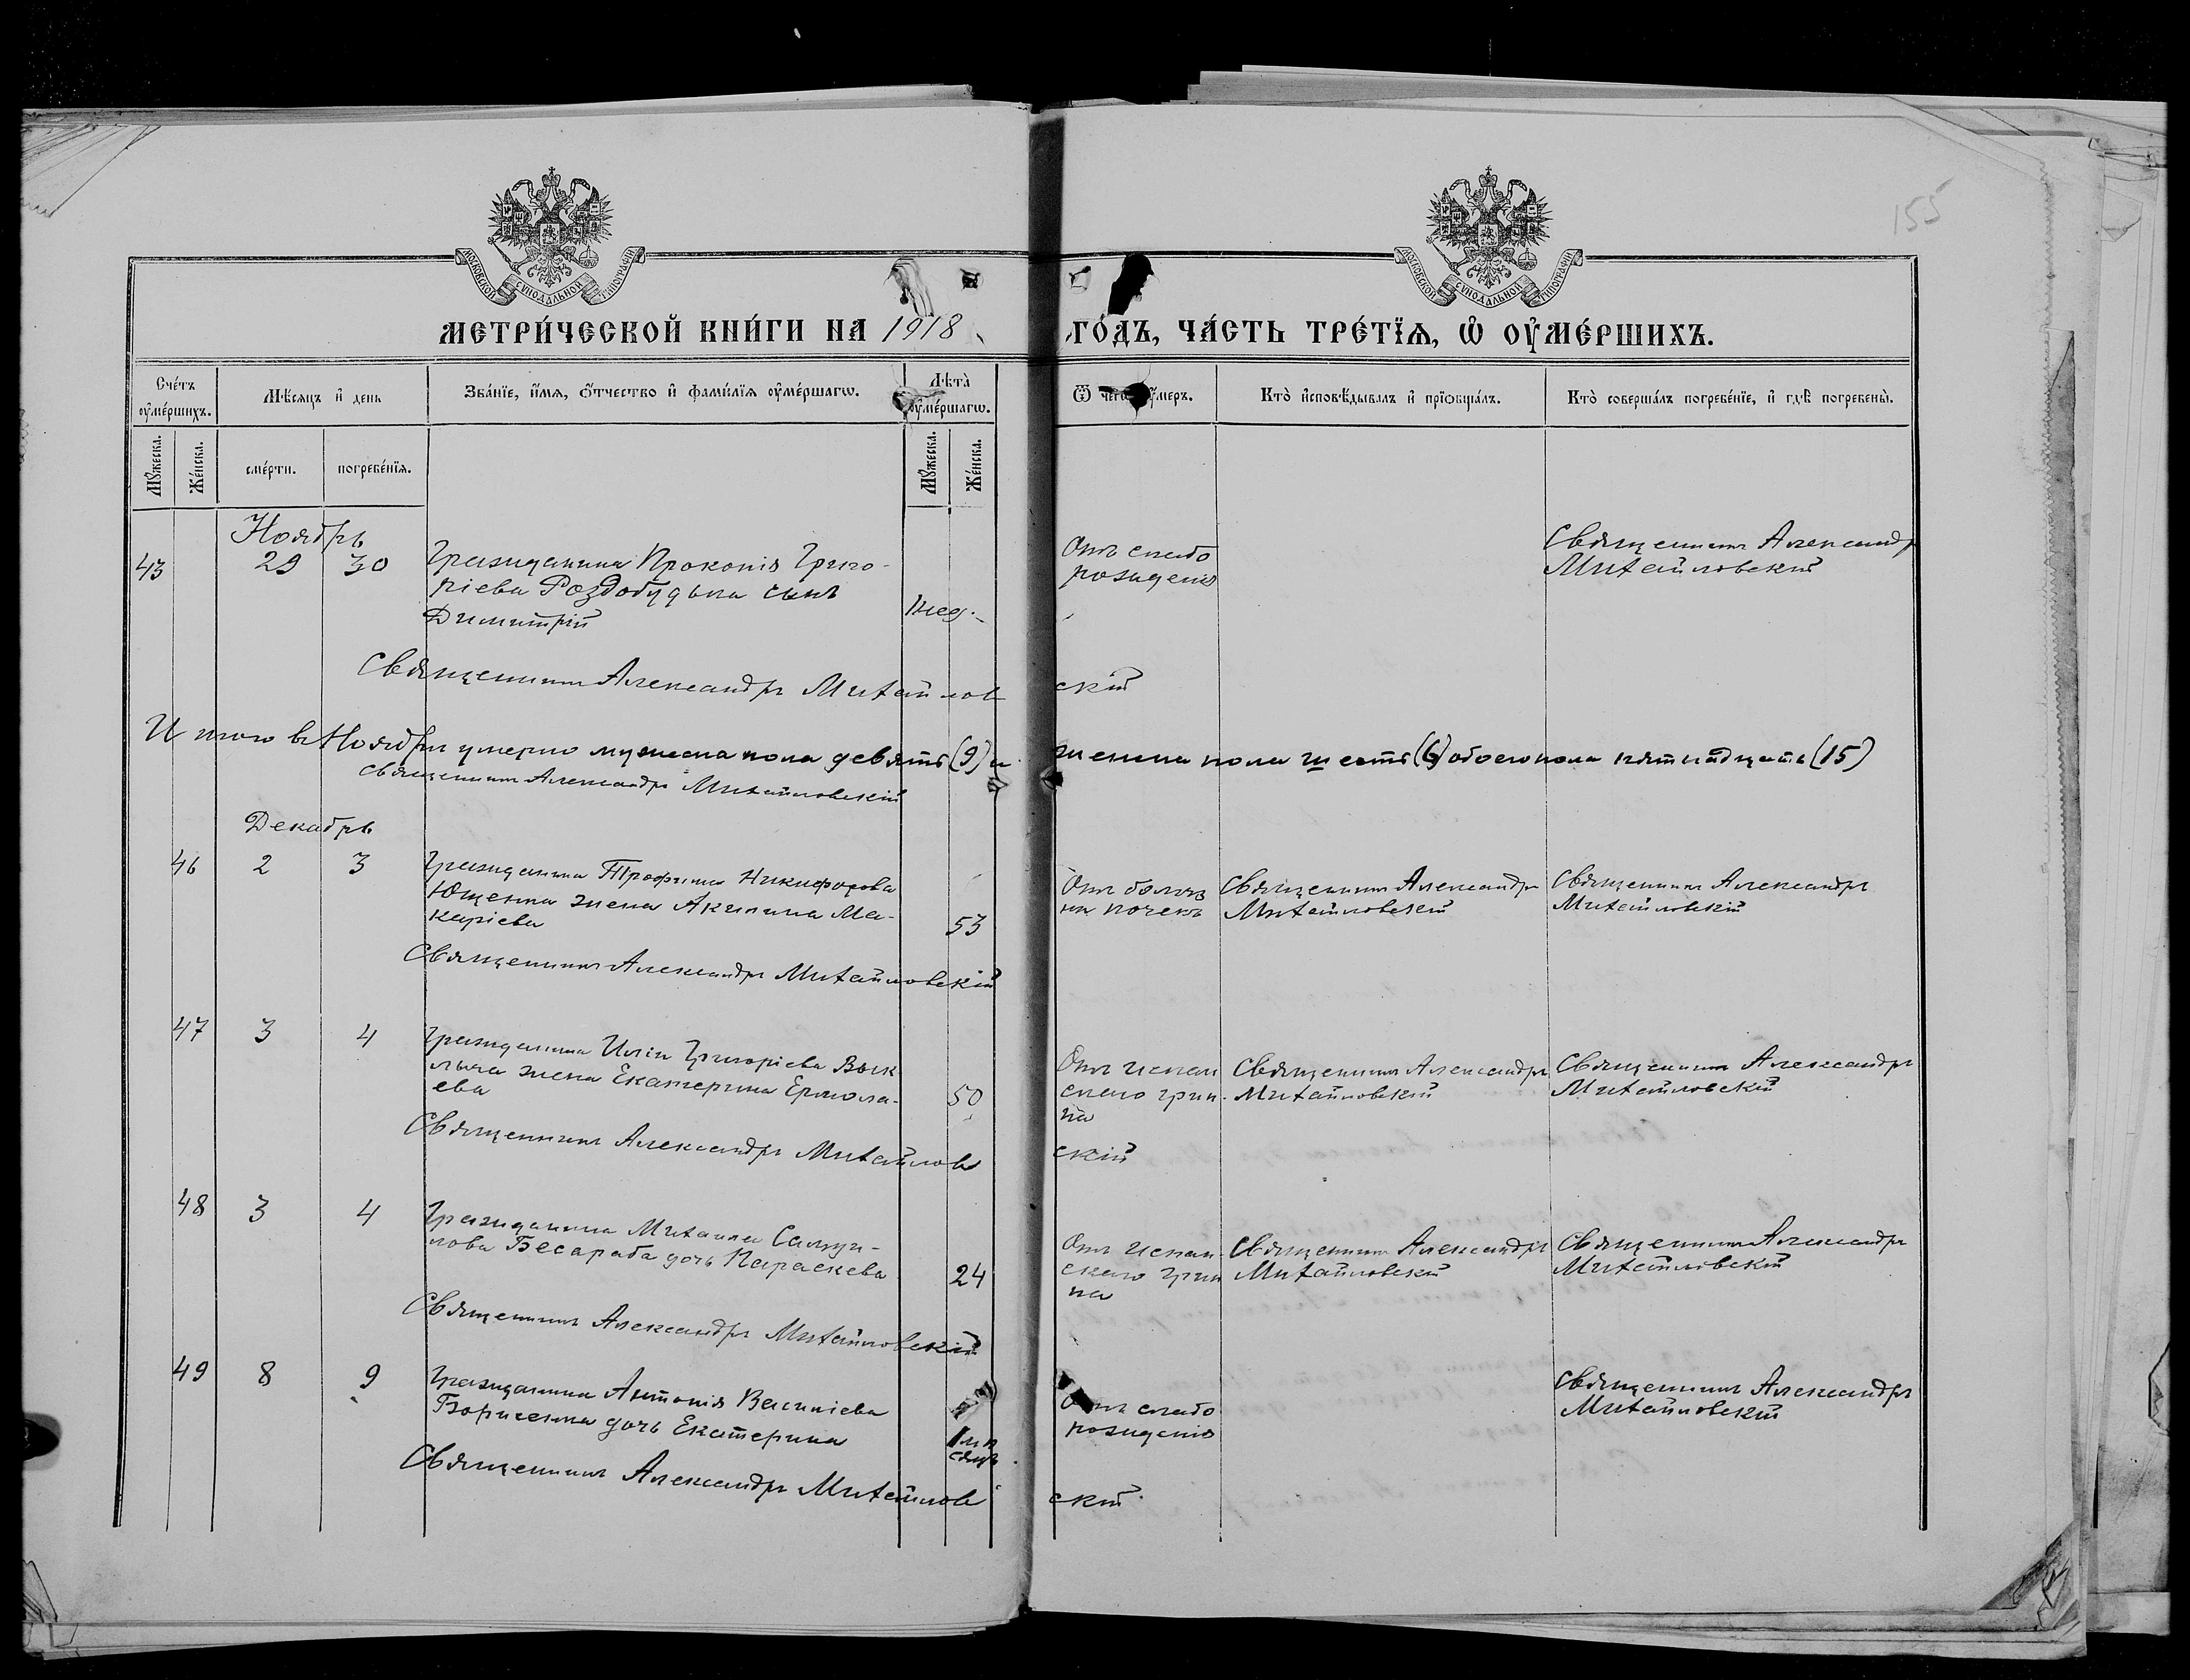 155
МОСКОВСКОЙ СУНОДАЛЬНОЙ ТИПОГРАФІИ
МОСКОВСКОЙ СУНОДАЛЬНОЙ ТИПОГРАФІИ
МЕТРИ́ЧЕСКОЙ КНИ́ГИ НА 1918 ГО́ДЪ, ЧА́СТЬ ТРЕ́ТЇѦ, Ѡ҆ ОУ҆МЕ́РШИХЪ.
Сче́тъ оу҆ме́ршихъ.
Мѣ́сяцъ и҆ день
Зва́нїе, и҆́мѧ, ѻ҆́тчество и҆ фами́лїѧ оу҆ме́ршагѡ.
Лѣта̀ оу҆ме́ршагѡ.
Ѿ чегѡ̀ оу҆́меръ.
Кто̀ и҆сповѣ́дывалъ и҆ прїѡбща́лъ.
Кто̀ соверша́лъ погребе́нїе, и҆ гдѣ̀ погребены̀.
Мꙋ́жеска.
Же́нска.
сме́рти.
погребе́нїѧ.
Мꙋ́жеска.
Же́нска.
Ноябрь
43 29 30 Гражданина Прокопія Григо-
ріева Роздобудька сынъ
Димитрій
1 нед.
Отъ слабо
рожденія
Священникъ Александръ
Михайловскій
Священникъ Александръ Михайловскій
Итого въ Ноябрѣ умерло мужеска пола девять (9) и женска пола шесть (6) обоего пола пятнадцать (15)
Священникъ Александръ Михайловскій
Декабрь
46 2 3 Гражданина Трофима Никифорова
Ющенка жена Акилина Ма-
каріева
53
Отъ болѣз
ни почекъ
Священникъ Александръ
Михайловскій
Священникъ Александръ
Михайловскій
Священникъ Александръ Михайловскій
47 3 4 Гражданина Иліи Григоріева
жена Екатерина Ермола-
ева
50
Отъ испан
скаго грип-
па
Священникъ Александръ
Михайловскій
Священникъ Александръ
Михайловскій
Священникъ Александръ Михайловскій
48 3 4 Гражданина Михаила Самуи-
лова Бесараба дочь Параскева
24
Отъ испан-
скаго грип
па
Священникъ Александръ
Михайловскій
Священникъ Александръ
Михайловскій
Священникъ Александръ Михайловскій
49 8 9 Гражданина Антонія Василіева
Борисенка дочь Екатерина
1 мѣ
сяцъ
Отъ слабо
рожденія
Священникъ Александръ
Михайловскій
Священникъ Александръ Михайловскій